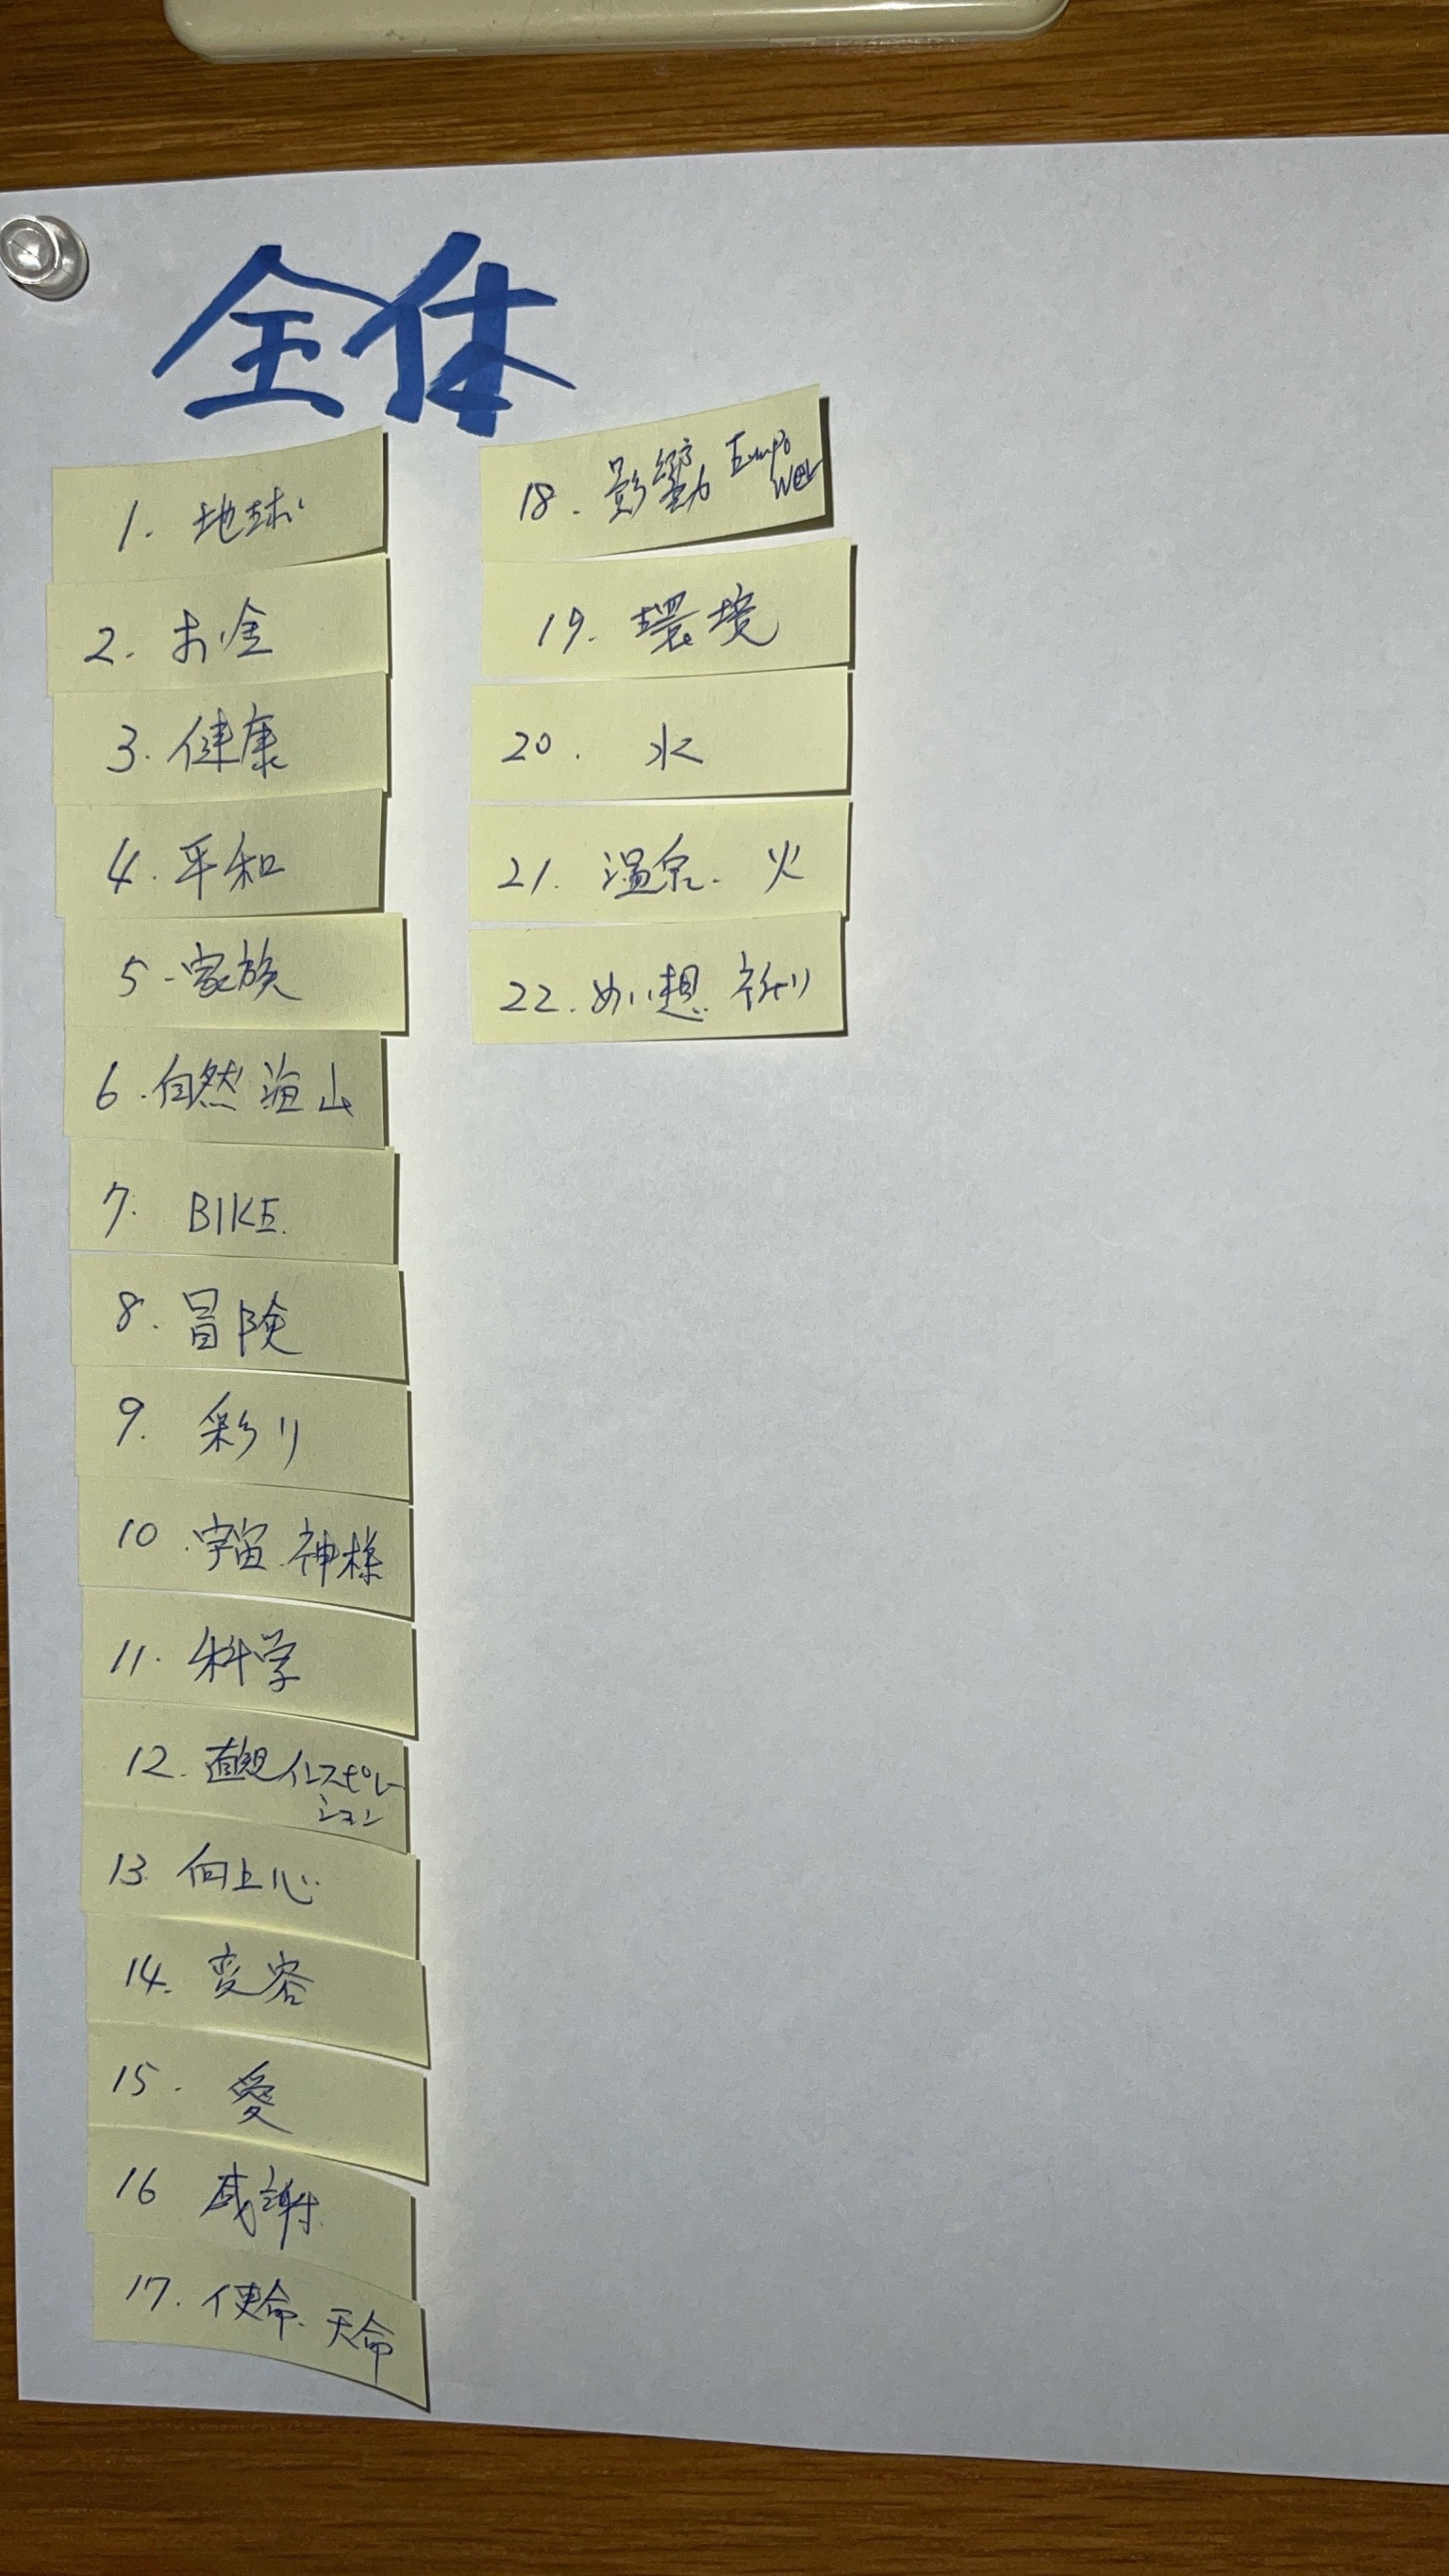 全体
1. 地球
2. お金
3. 健康
4. 平和
5. 家族
6. 自然 海 山
7. BIKE.
8. 冒険
9. 彩り
10. 宇宙. 神様
11. 科学
12. 直観 インスピレー
ション
13. 向上心.
14. 変容
15. 愛
16 感謝.
17. 使命. 天命
18. 影響力 Empo
wer
19. 環境
20. 水
21. 温泉. 火
22. めい想. 祈り